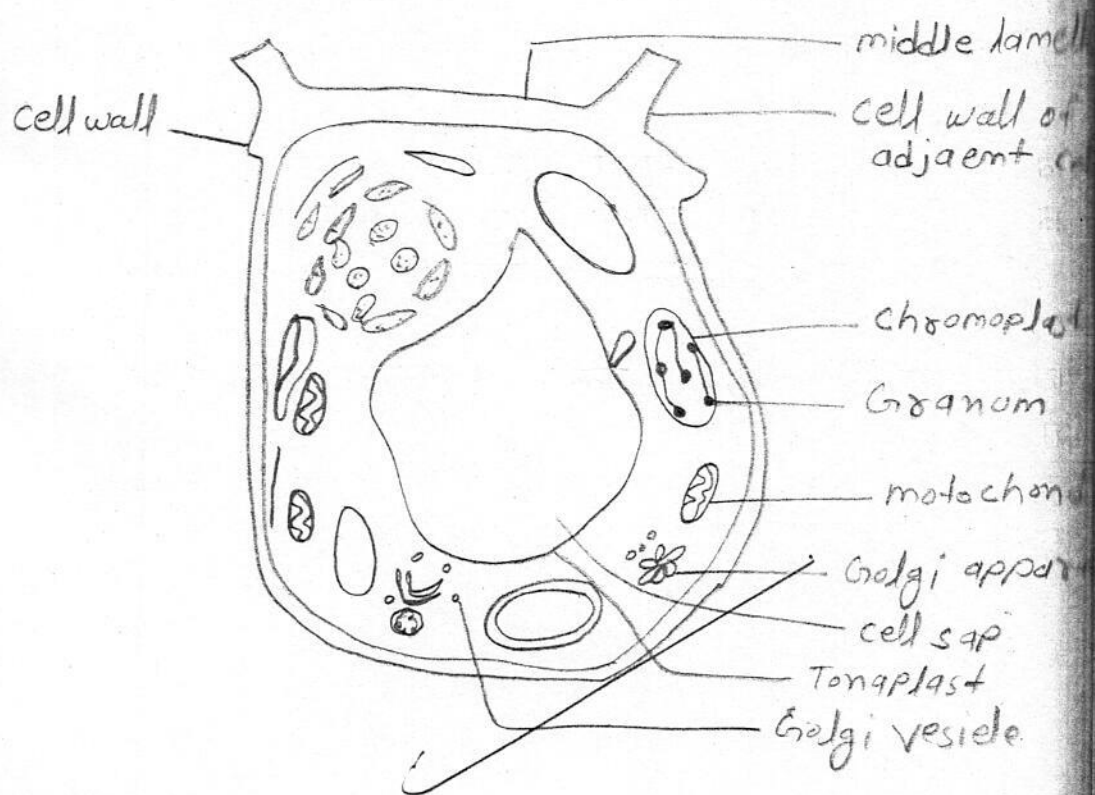 middle lamell
cell wall
cell wall of
adjaent
Chromoplast
Granum
motochond
Golgi appar
cell sap
Tonaplast
Golgi vesicle